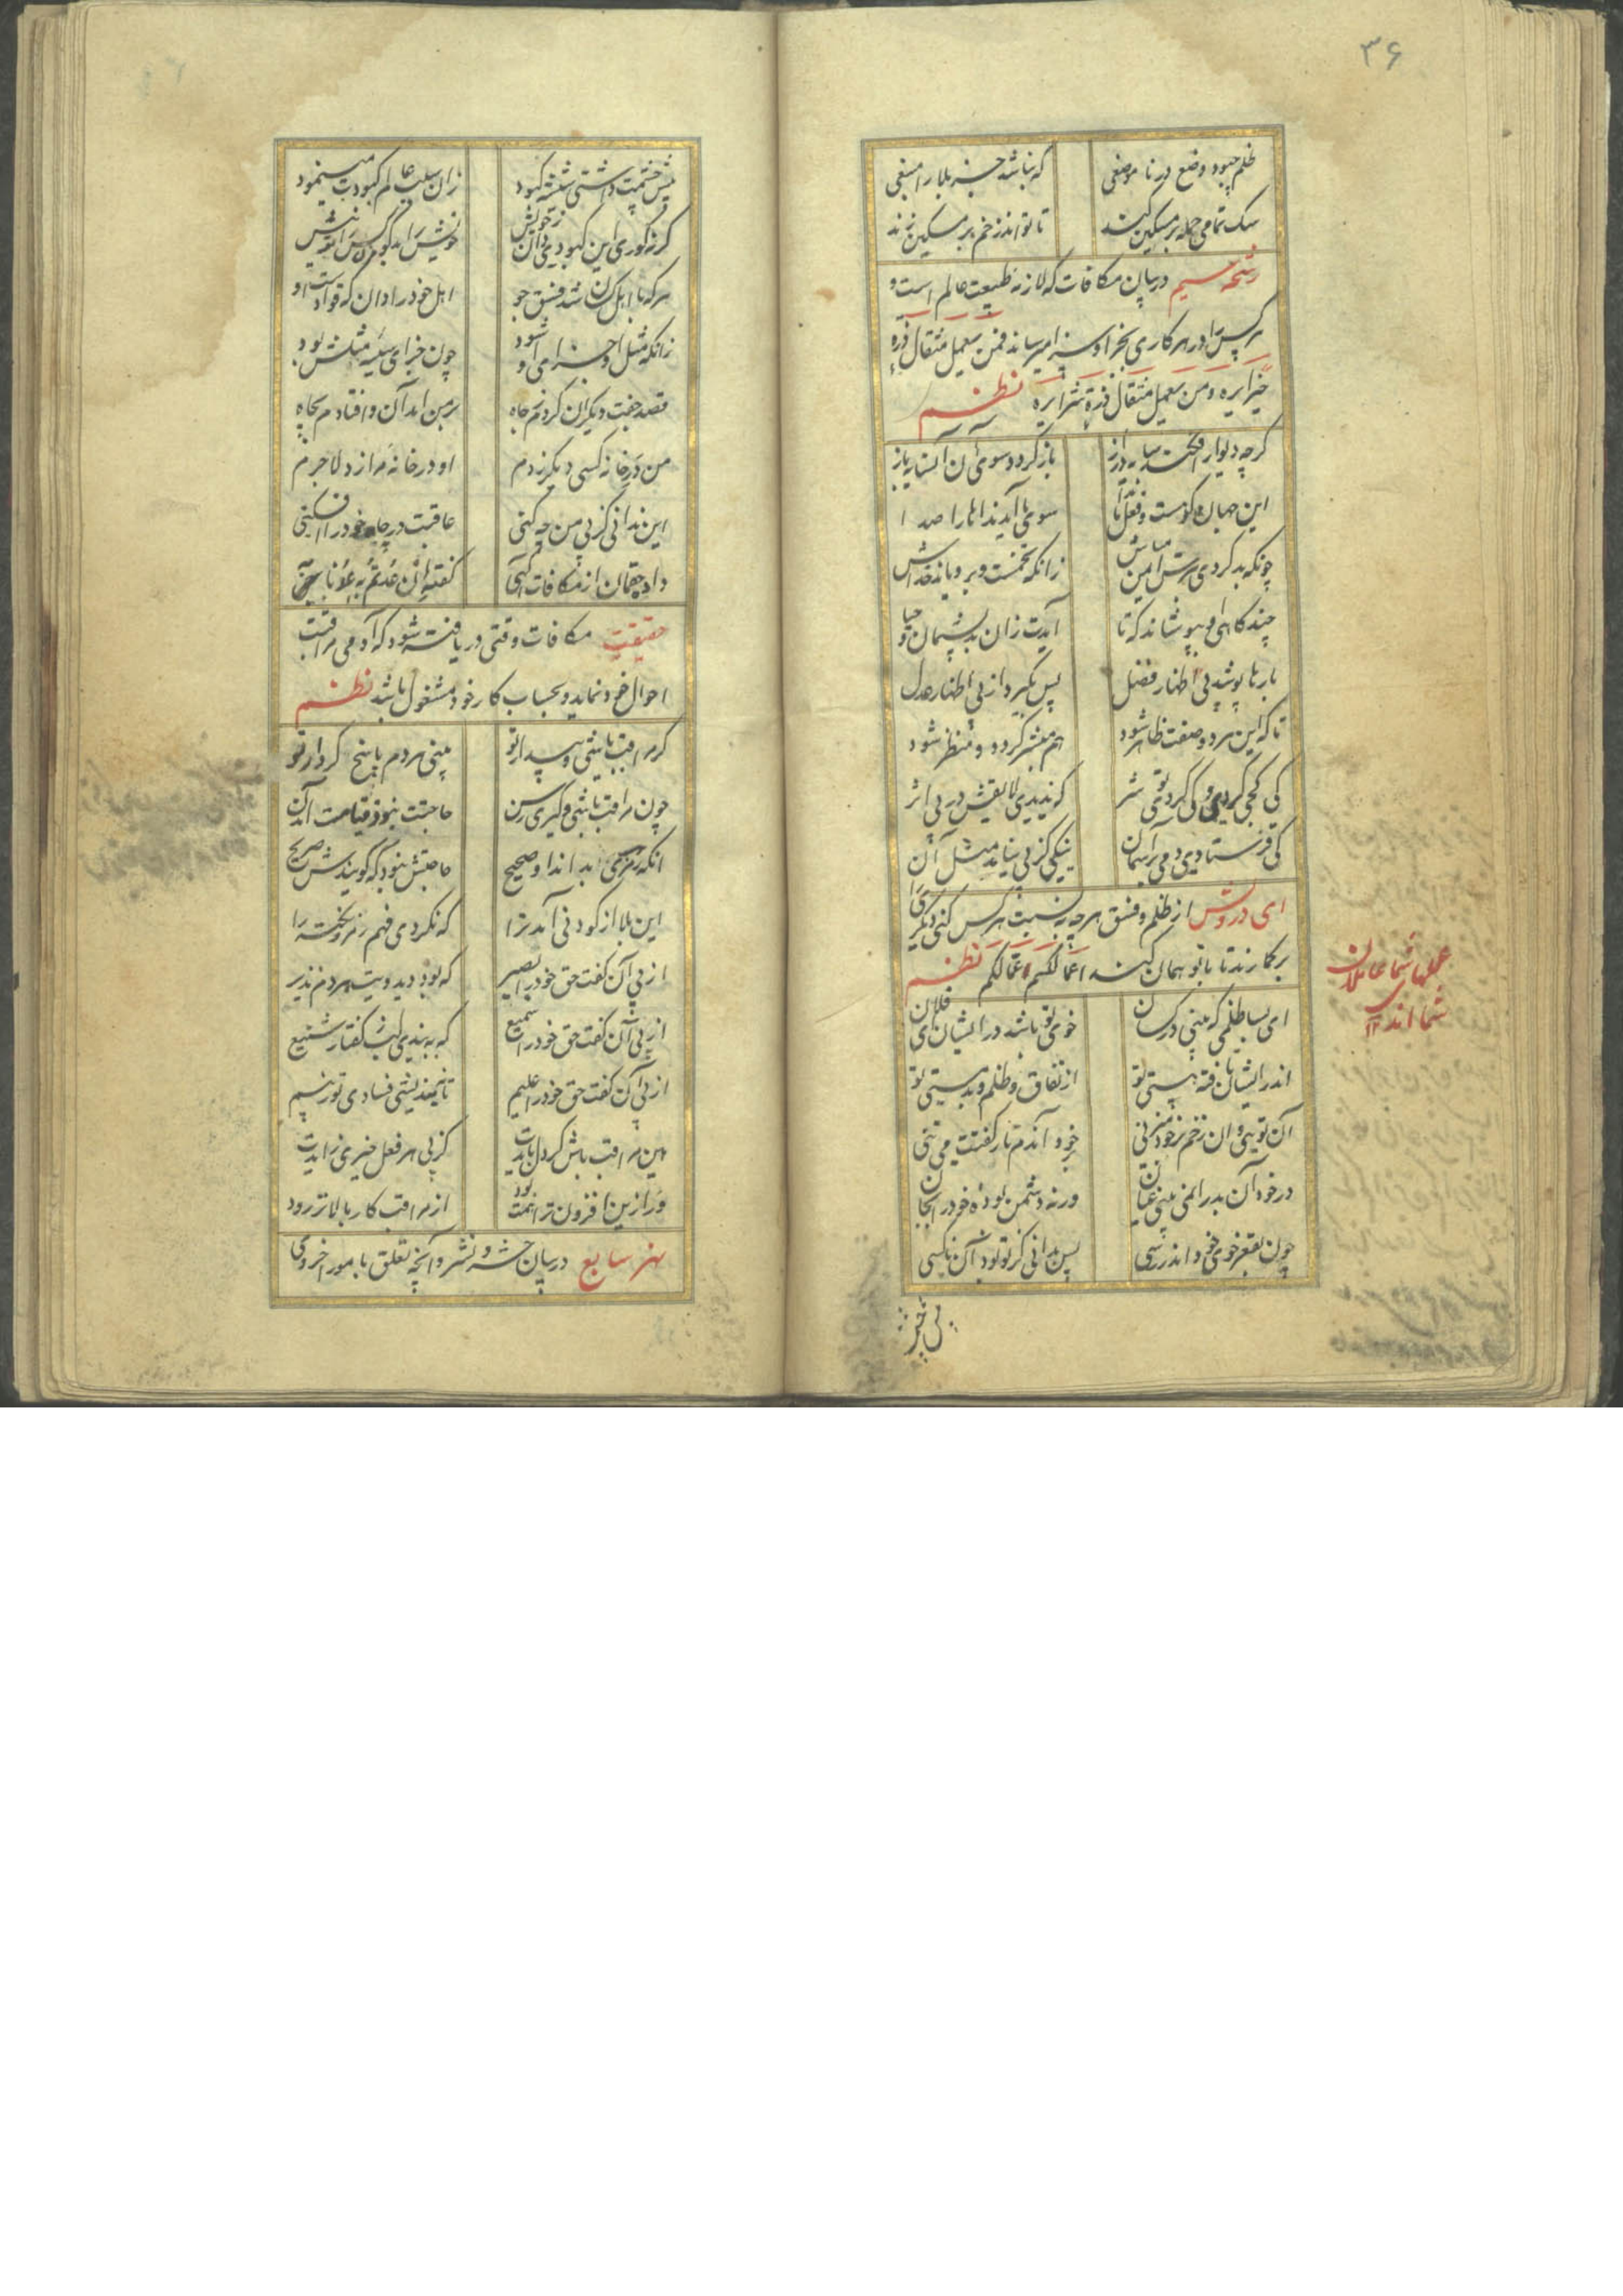 ۳۶
ظلم چبود وضع در نا موضعی
که نباشد جز بلا را منبعی
سک تمامی حمله بر مسکین کند
تا تواند زخم بر مسکین زند
رشحه سیم در بیان مکافات که لازمه طبیعت عالم است و
هر کس را در هر کاری بجزا و سزا میرساند فمن یعمل مثقال ذرة
خیرا یره و من یعمل مثقال ذرة شرا یره نظم
کرچه دیوار افکند سایه دراز
باز کردد سوی آن آن سایه باز
این جهان کوهست و فعل ما ندا
سوی ما آید نداها را صدا
چونکه بد کردی بترس ایمن مباش
زانکه تخمست و برویاند خداش
چند کاهی او بپوشاند که تا
آیدت زان بد پشیمان و حیا
بارها پوشد پی اظهار فضل
پس بکیرد از پی اظهار عدل
تا که این هر دو صفت ظاهر شود
هم مبشر کردد و منظر شود
کی کجی کردی و کی کردی تو شر
که ندیدی لایقش در پی اثر
کی فرستادی دمی بر آسمان
نیکی کز پی نیاید مثل آن
ای درویش از ظلم و فسق هر چه به نسبت هر کس کنی دیکری را
بر کمارند تا با تو همان کند اعمالکم عمالکم نظم
عملهاء شما عاملان
شمااند ۱۲
ای بسا ظلمی که بینی در کسان
خوی تو باشد در ایشان ای فلان
اندر ایشان تافته هستی تو
از نفاق و ظلم و بد مستی تو
آن تویی و ان زخم بر خود میزنی
بر خود آندم تار لعنت می تنی
در خود آن بد را نمی بینی عیان
ورنه دشمن بوده خود را بجان
چون بقعر خوی خود اندر رسی
پس بدانی کز تو بود آن ناکسی
پیش چشمت داشتی شیشه کبود
زان سبب عالم کبودت مینمود
کر نه کوری این کبودی دان ز خویش
خویش را بد کو مکو کس را تو بیش
هر که با اهل کسان شد فسق جو
اهل خود را دان که قوادست او
زانکه مثل آن جزای او شود
چون جزای سیئه مثلش بود
قصد جفت دیکران کردم ز جاه
بر من امد آن و افتادم بچاه
من در خانه کسی دیکر زدم
او در خانه مرا زد لاجرم
این ندانی کز پی من چه کنی
عاقبت در چاه خود را افکنی
داد حقمان از مکافات آکهی
کفت ان عدتم به عدنا به
حقیقت مکافات وقتی دریافت شود که آدمی مراقب
احوال خود نماید و بحساب کار خود مشغول باشد نظم
کر مراقب باشی و بیدار تو
بینی هر دم پاسخ کردار تو
چون مراقب باشی و کیری رسن
حاجتت نبود قیامت آمدن
آنکه رمزی را بداند او صحیح
حاجتش نبود که کویندش صریح
این بلا از کودنی آمد ترا
که نکردی فهم رمز و نکته را
از پی آن کفت حق خود را بصیر
که بود دید ویت هر دم نذیر
از پی آن کفت حق خود را سمیع
که ببندی لب ز کفتار شنیع
از پی آن کفت حق خود را علیم
تا نیندیشی فسادی تو ز بیم
هین مراقب باش کر دل بایدت
کز پی هر فعل چیزی زایدت
ور ازین افزون ترا همت بود
از مراقب کار بالاتر رود
نهر سابع در بیان حشر و نشر و آنچه تعلق بامور اخروی